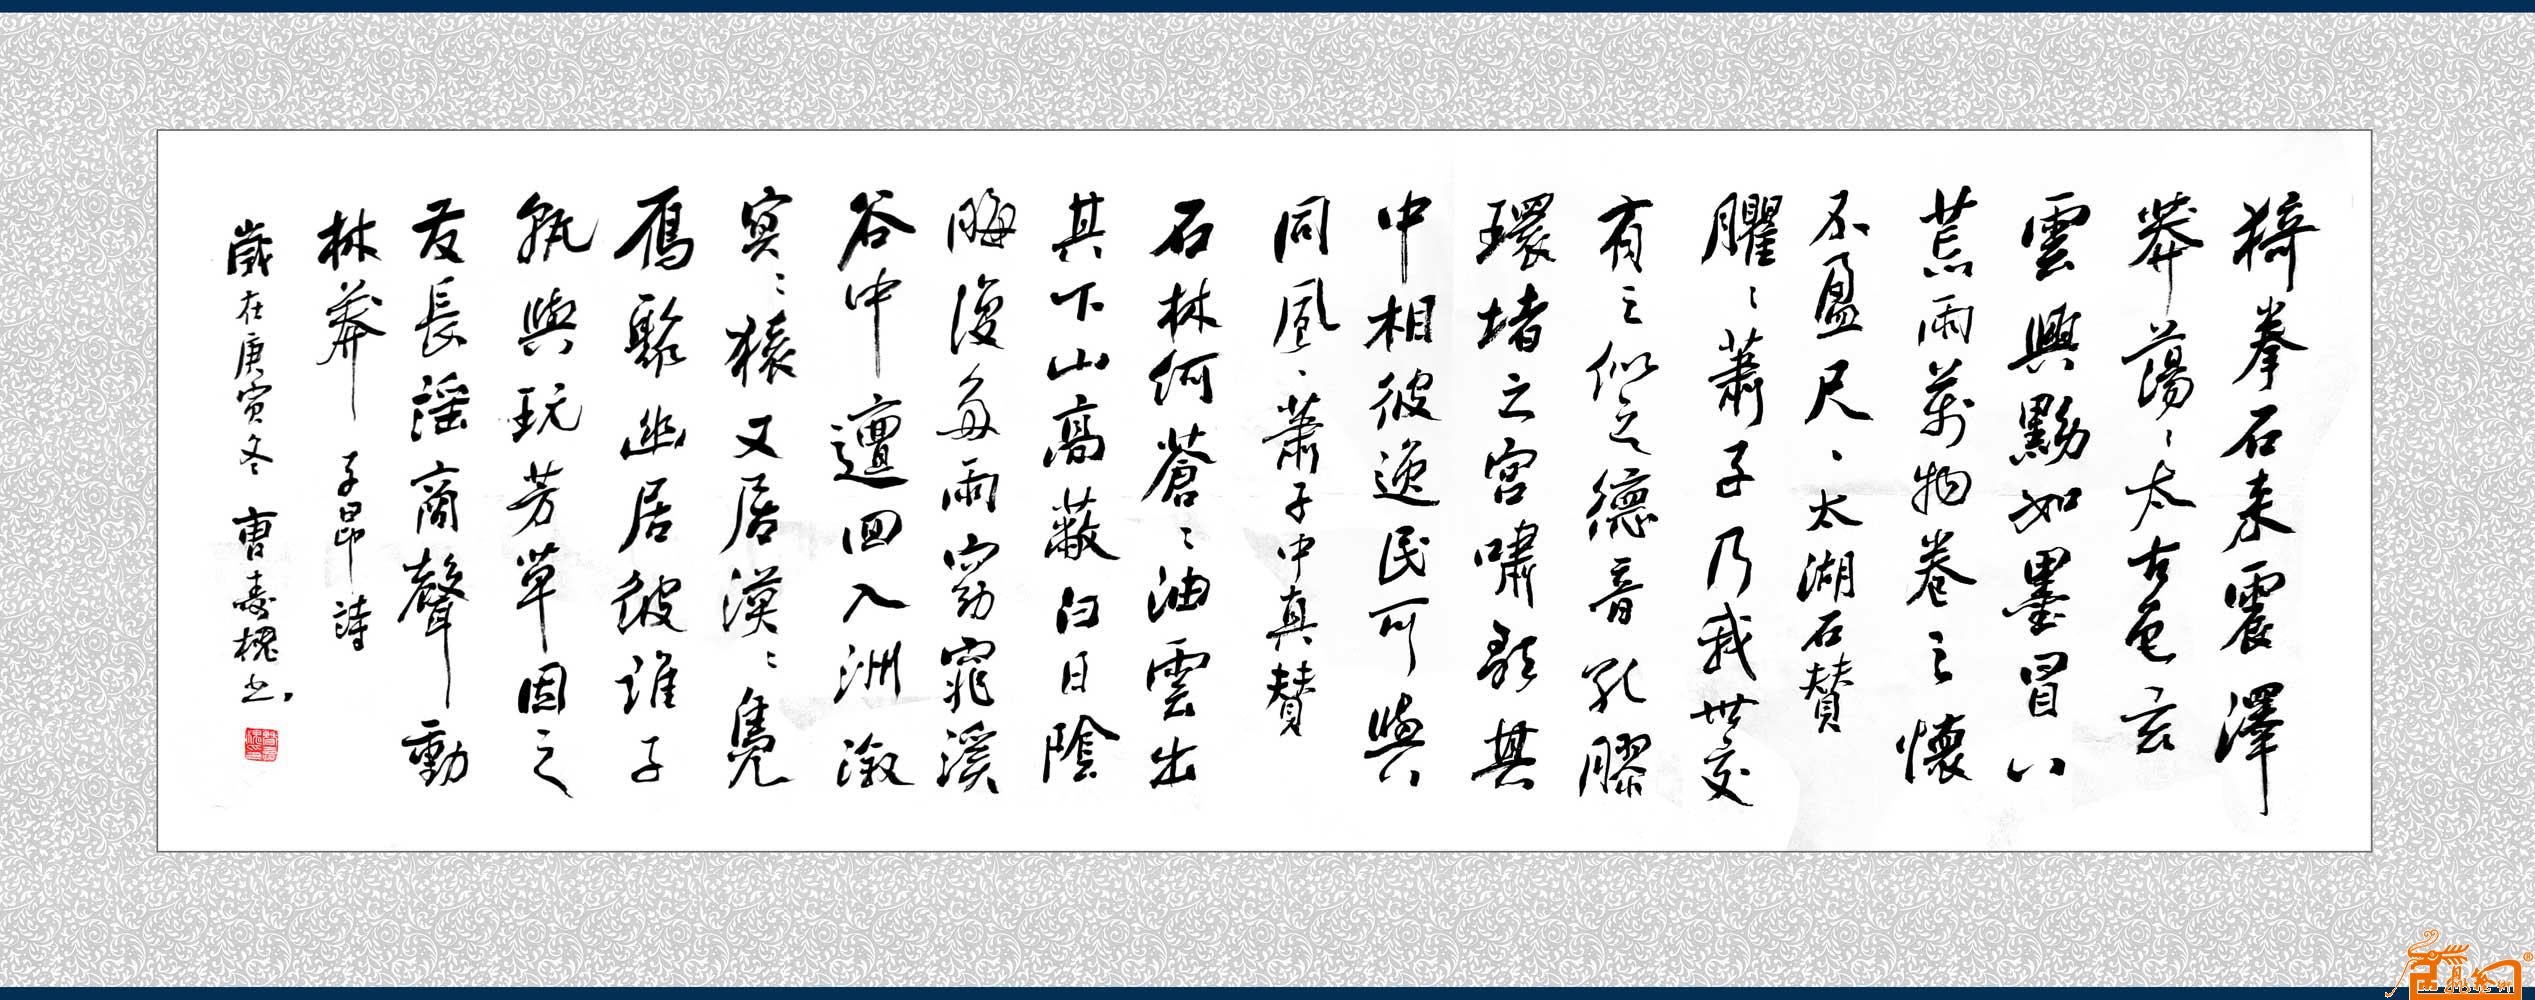 猗拳石来震澤
莽蕩〻太古色玄
雲興黝如墨冒以
荒雨萬物卷之懷
不盈尺、太湖石贊
臞〻蕭子乃我世交
有之似之德音孔膠
環堵之宮嘯歌其
中相彼逸民可與
同風、蕭子中真贊
石林何蒼〻油雲出
其下山高蔽白日陰
晦復多雨窈窕溪
谷中邅回入洲溆
冥〻猿又居漠〻鳧
雁聚幽居彼誰子
孰與玩芳草因之
友長謠商聲動
林莽 子昂詩
歲在庚寅冬 曹壽槐书